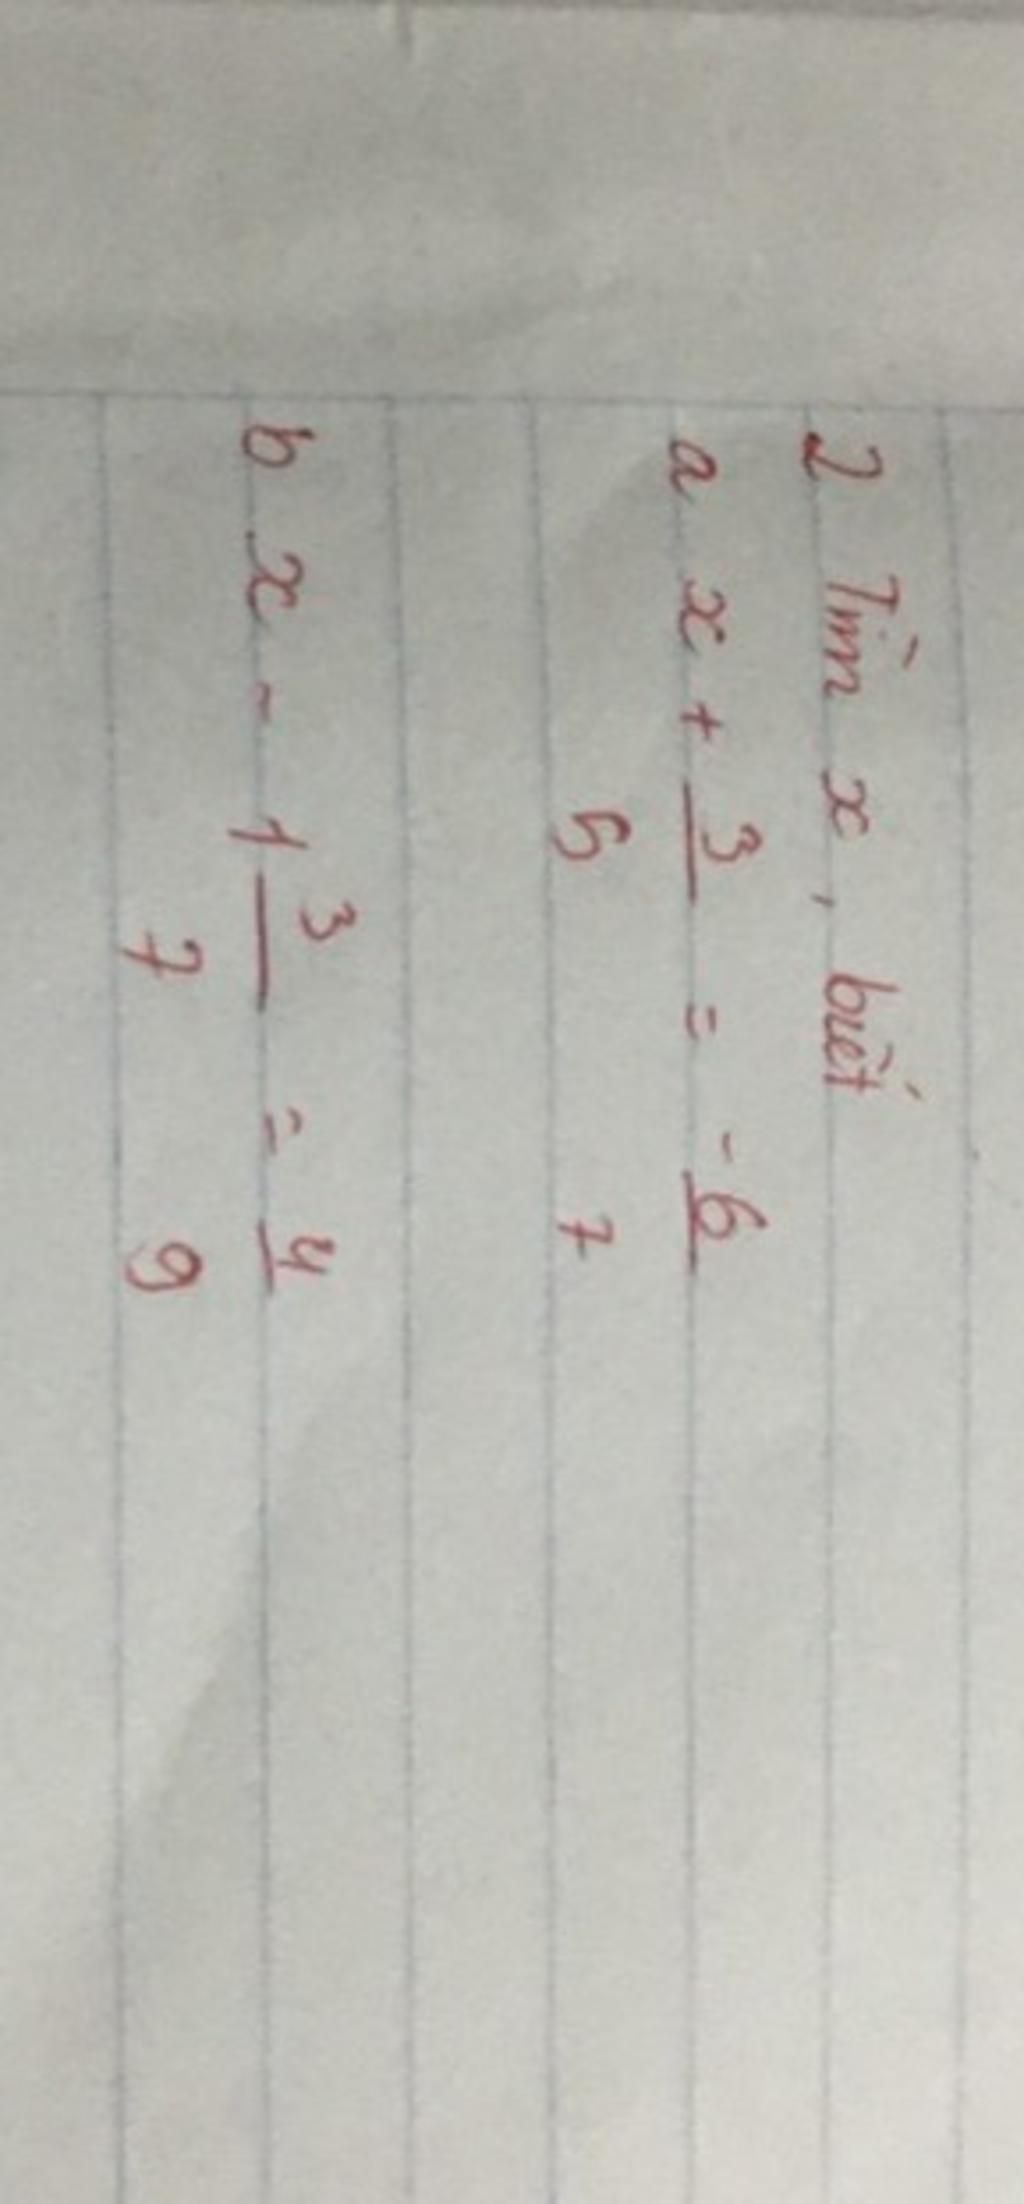 2 Tìm x, biết
a x + 3/5 = -6/7
b x - 1 3/7 = 4/9